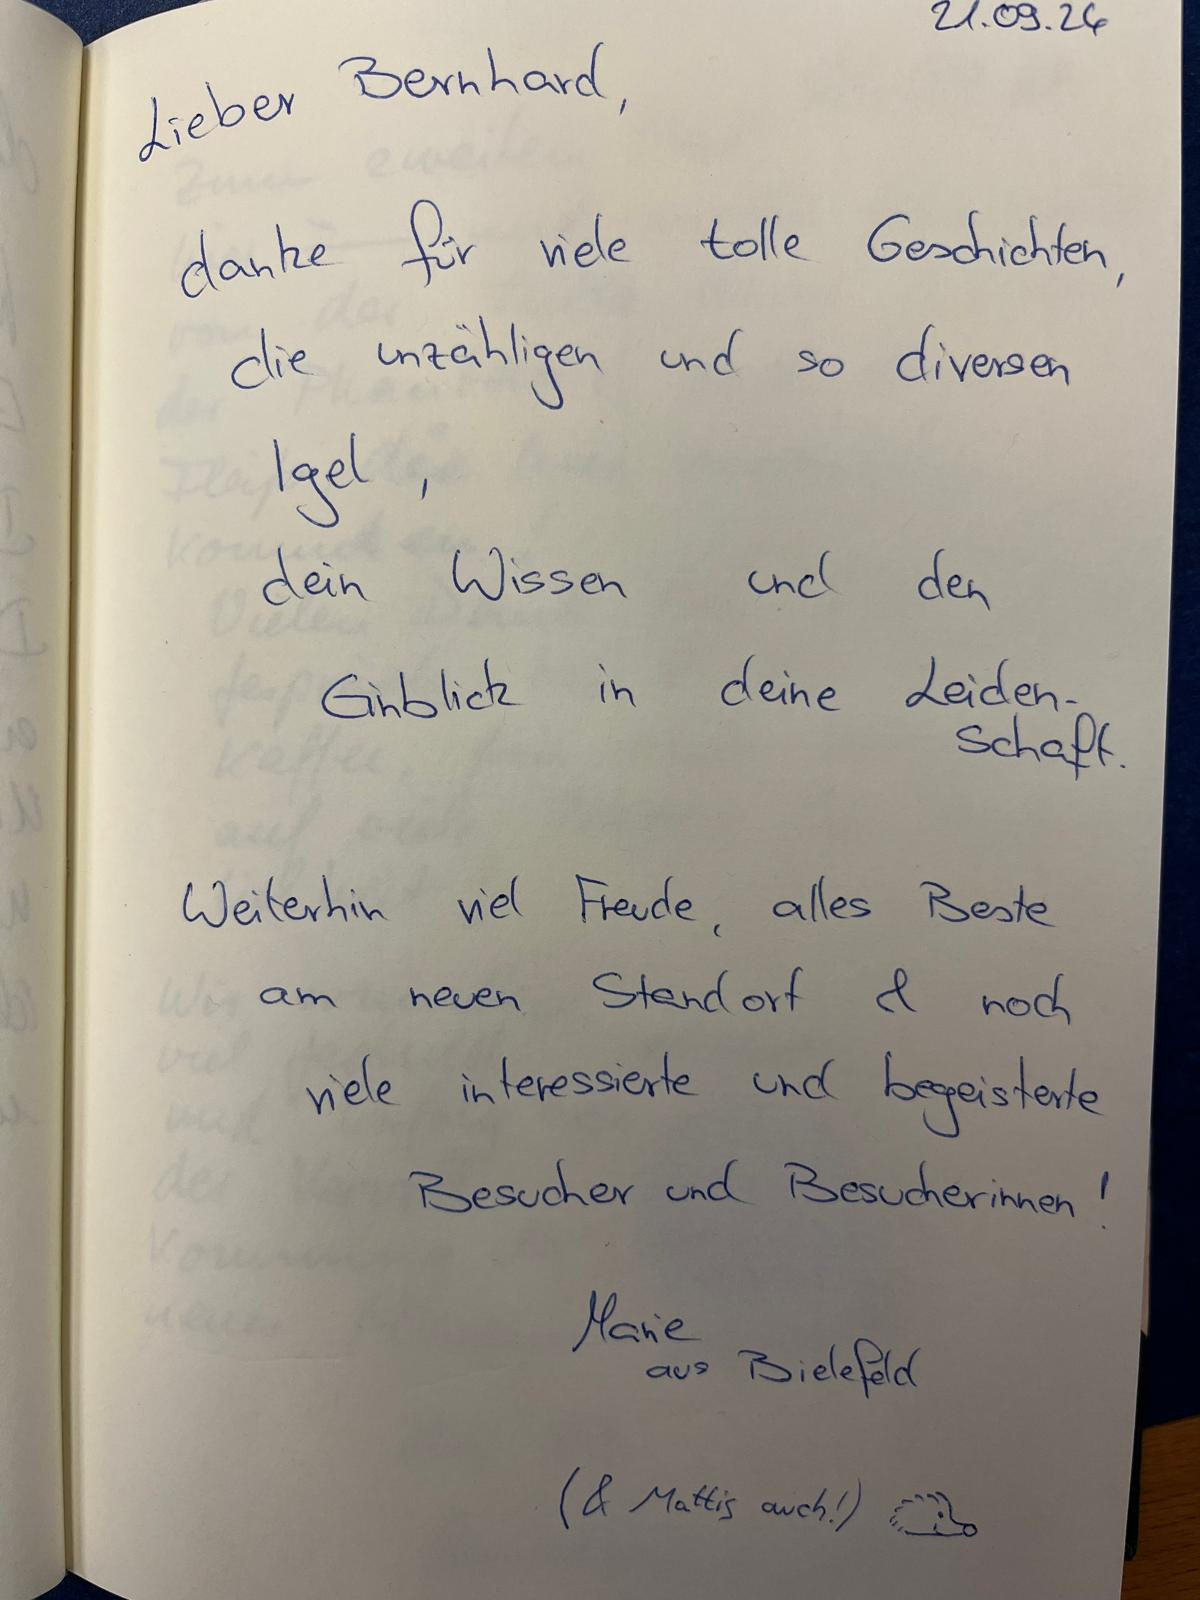 21.09.24
Lieber Bernhard,
danke für viele tolle Geschichten,
die unzähligen und so diversen
Igel,
dein Wissen und den
Einblick in deine Leiden-
schaft.
Weiterhin viel Freude, alles Beste
am neuen Standort & noch
viele interessierte und begeisterte
Besucher und Besucherinnen!
Marie
aus Bielefeld
(& Mattis auch!)